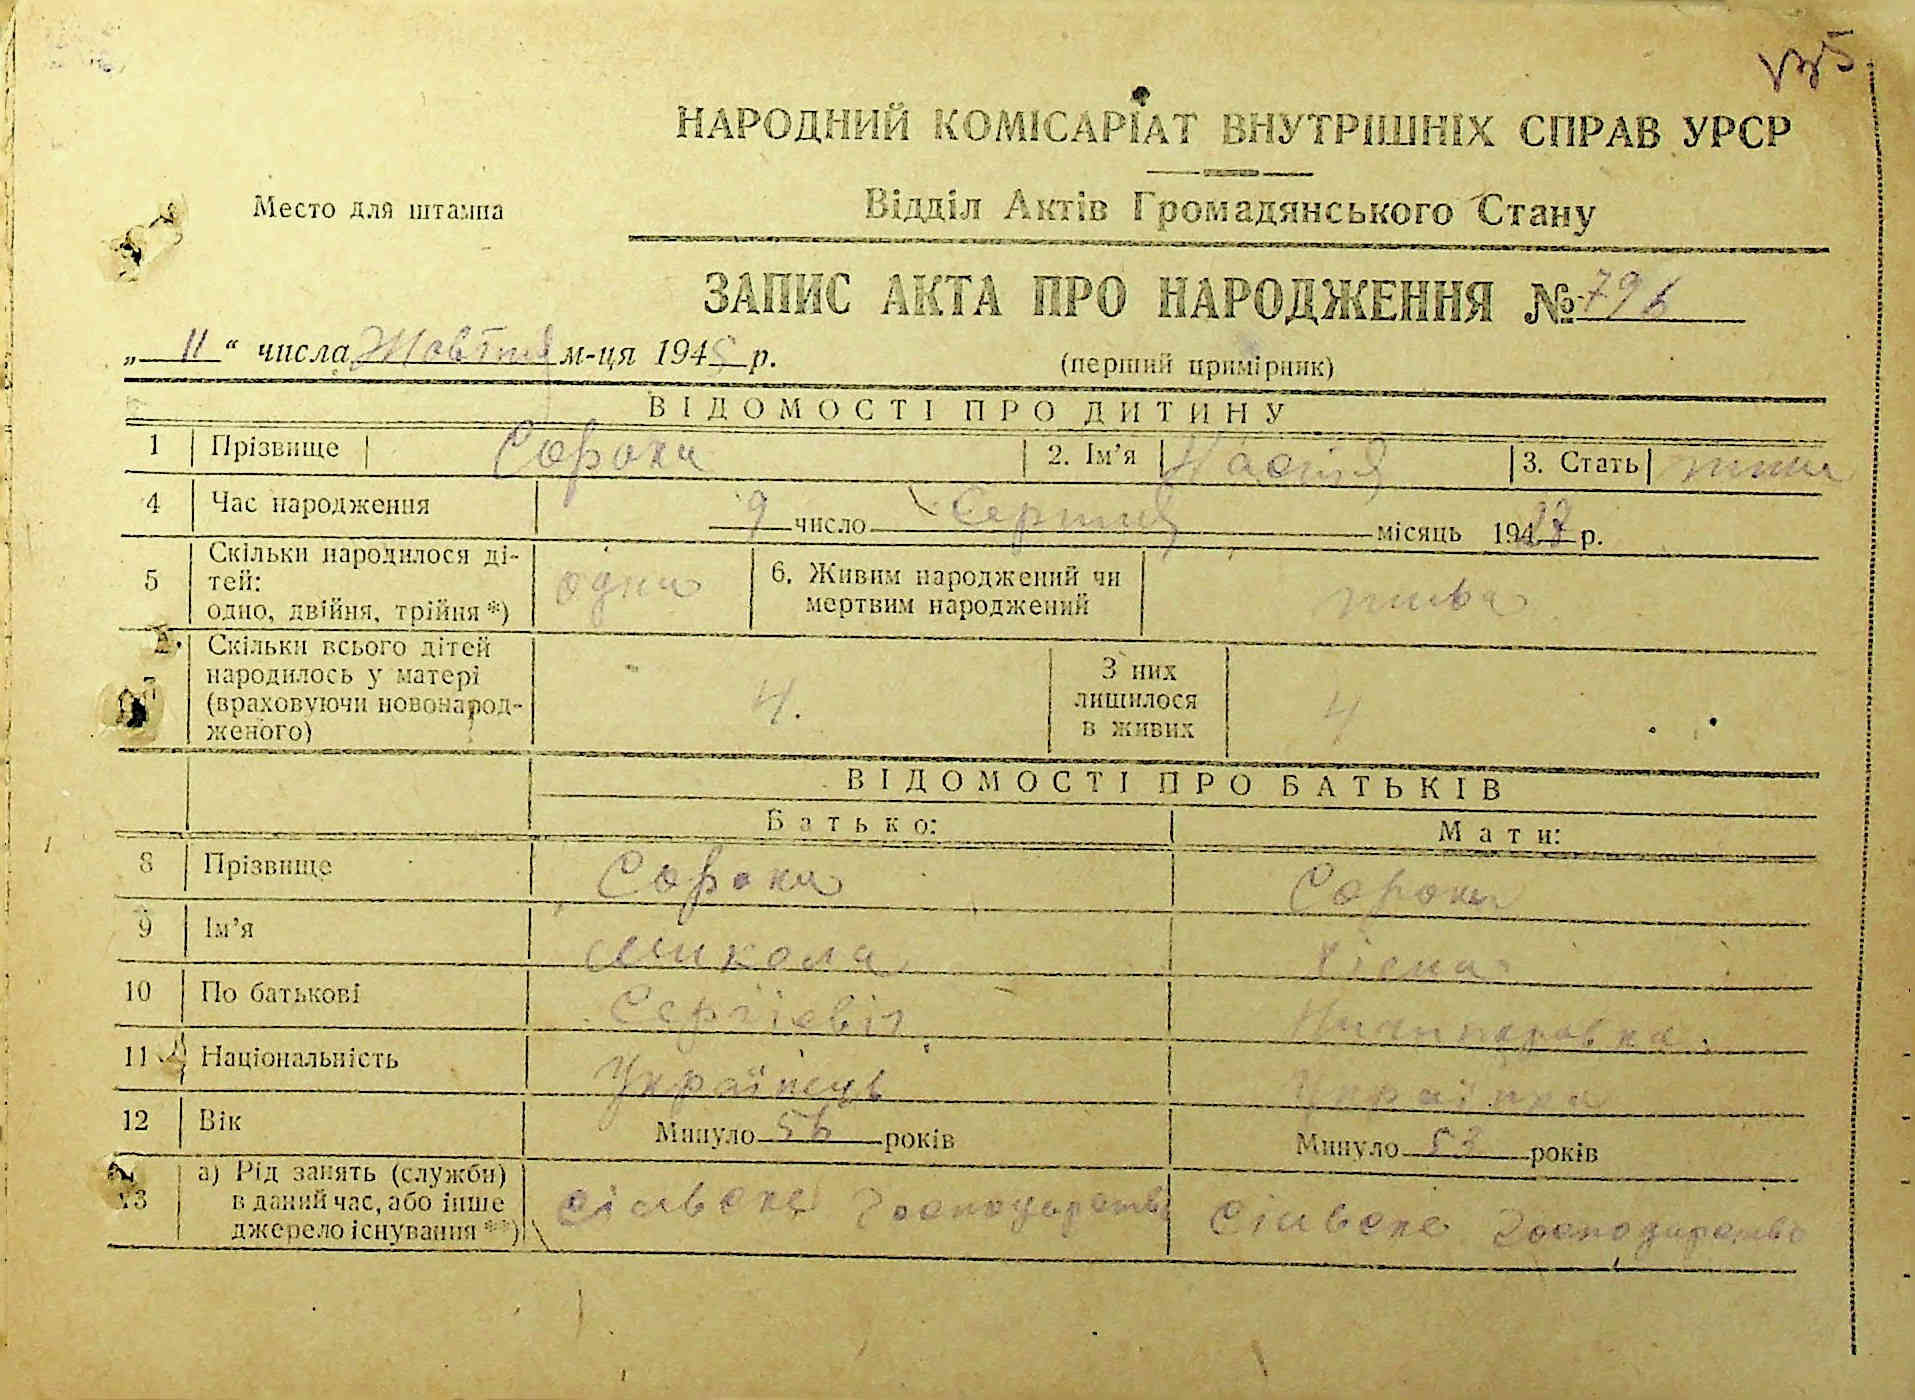 НАРОДНИЙ КОМІСАРІАТ ВНУТРІШНІХ СПРАВ УРСР
Место для штампа
Відділ Актів Громадянського Стану
ЗАПИС АКТА ПРО НАРОДЖЕННЯ № 796
„ 11 “ числа Жовтня м-ця 1945 р.
(перший примірник)
ВІДОМОСТІ ПРО ДИТИНУ
1 Прізвище Сорока 2. Ім’я Настя 3. Стать
4 Час народження 9 число Серпня місяць 194 р.
5 Скільки народилося ді-
тей:
одно, двійня, трійня *) одна 6. Живим народжений чи
мертвим народжений жива
Скільки всього дітей
народилось у матері
(враховуючи новонарод-
женого) 4. З них
лишилося
в живих 4
ВІДОМОСТІ ПРО БАТЬКІВ
Батько: Мати:
8 Прізвище Сорока Сорока
9 Ім’я Микола
10 По батькові Сергієвіч
11 Національність Українець Українка
12 Вік Минуло 56 років Минуло 53 років
13 а) Рід занять (служби)
в даний час, або інше
джерело існування **) Сільске Господарство Сільске Господарство